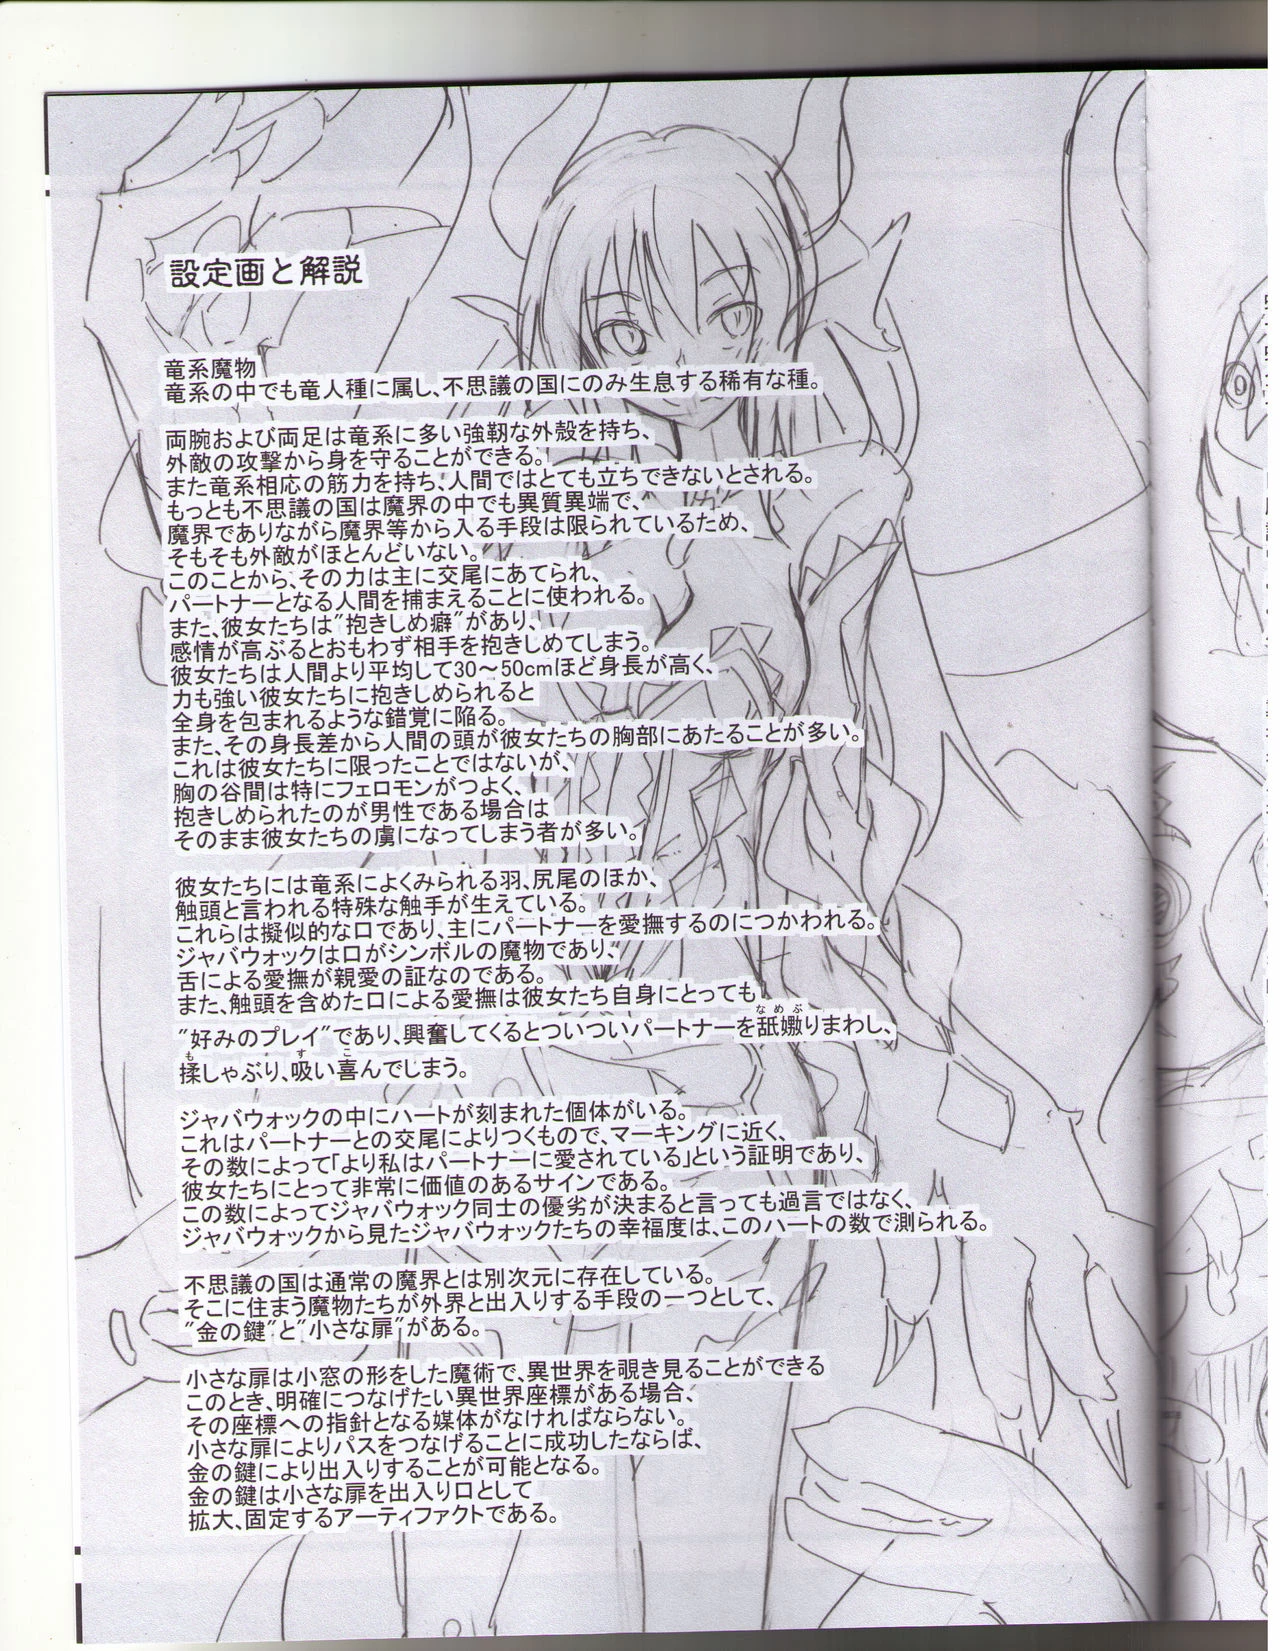 設定画と解説
竜系魔物
竜系の中でも竜人種に属し、不思議の国にのみ生息する稀有な種。
両腕および両足は竜系に多い強靭な外殻を持ち、
外敵の攻撃から身を守ることができる。
また竜系相応の筋力を持ち、人間ではとても立ちできないとされる。
もっとも不思議の国は魔界の中でも異質異端で、
魔界でありながら魔界等から入る手段は限られているため、
そもそも外敵がほとんどいない。
このことから、その力は主に交尾にあてられ、
パートナーとなる人間を捕まえることに使われる。
また、彼女たちは"抱きしめ癖"があり、
感情が高ぶるとおもわず相手を抱きしめてしまう。
彼女たちは人間より平均して30～50cmほど身長が高く、
力も強い彼女たちに抱きしめられると
全身を包まれるような錯覚に陥る。
また、その身長差から人間の頭が彼女たちの胸部にあたることが多い。
これは彼女たちに限ったことではないが、
胸の谷間は特にフェロモンがつよく、
抱きしめられたのが男性である場合は
そのまま彼女たちの虜になってしまう者が多い。
彼女たちには竜系によくみられる羽、尻尾のほか、
触頭と言われる特殊な触手が生えている。
これらは擬似的な口であり、主にパートナーを愛撫するのにつかわれる。
ジャバウォックは口がシンボルの魔物であり、
舌による愛撫が親愛の証なのである。
また、触頭を含めた口による愛撫は彼女たち自身にとっても
なめぶ
"好みのプレイ"であり、興奮してくるとついついパートナーを舐嫐りまわし、
も す こ
揉しゃぶり、吸い喜んでしまう。
ジャバウォックの中にハートが刻まれた個体がいる。
これはパートナーとの交尾によりつくもので、マーキングに近く、
その数によって「より私はパートナーに愛されている」という証明であり、
彼女たちにとって非常に価値のあるサインである。
この数によってジャバウォック同士の優劣が決まると言っても過言ではなく、
ジャバウォックから見たジャバウォックたちの幸福度は、このハートの数で測られる。
不思議の国は通常の魔界とは別次元に存在している。
そこに住まう魔物たちが外界と出入りする手段の一つとして、
"金の鍵"と"小さな扉"がある。
小さな扉は小窓の形をした魔術で、異世界を覗き見ることができる
このとき、明確につなげたい異世界座標がある場合、
その座標への指針となる媒体がなければならない。
小さな扉によりパスをつなげることに成功したならば、
金の鍵により出入りすることが可能となる。
金の鍵は小さな扉を出入り口として
拡大、固定するアーティファクトである。